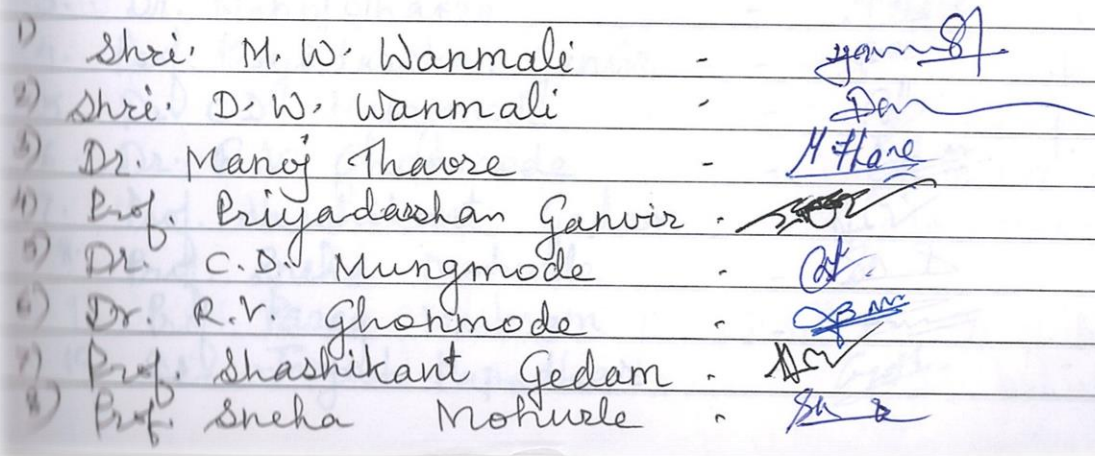 1) Shri. M. W. Wanmali -
2) Shri. D. W. Wanmali - Dan
3) Dr. Manoj Thavre - M Thare
4) Prof. Priyadarshan Ganvir -
5) Dr. C.D. Mungmode -
6) Dr. R.V. Ghonmode -
7) Prof. Shashikant Gedam -
8) Prof. Sneha Mohurle -